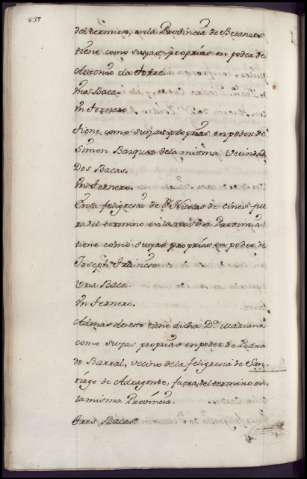 del termino, en la Provincia de Betanzos
tiene como suyas proprias en poder de
Antonio da Torre
Una Baca
Un ternero
tiene como suyas proprias en poder de
Simon Basquez de la misma Vecindad
Dos Bacas
Un ternero
En la feligresia de Sn Nicolas de Cines fue
ra del termino en la misma Provincia
tiene como suyas proprias en poder de
Joseph Francisco
Una Baca
Un ternero
Ademas de esto tiene dicha Da Mariana
como suyas proprias en poder de Pedro
do Barral, vecino de la feligresia de San
tiago de Adragonte, fuera del termino en
la misma Provincia
tres Bacas